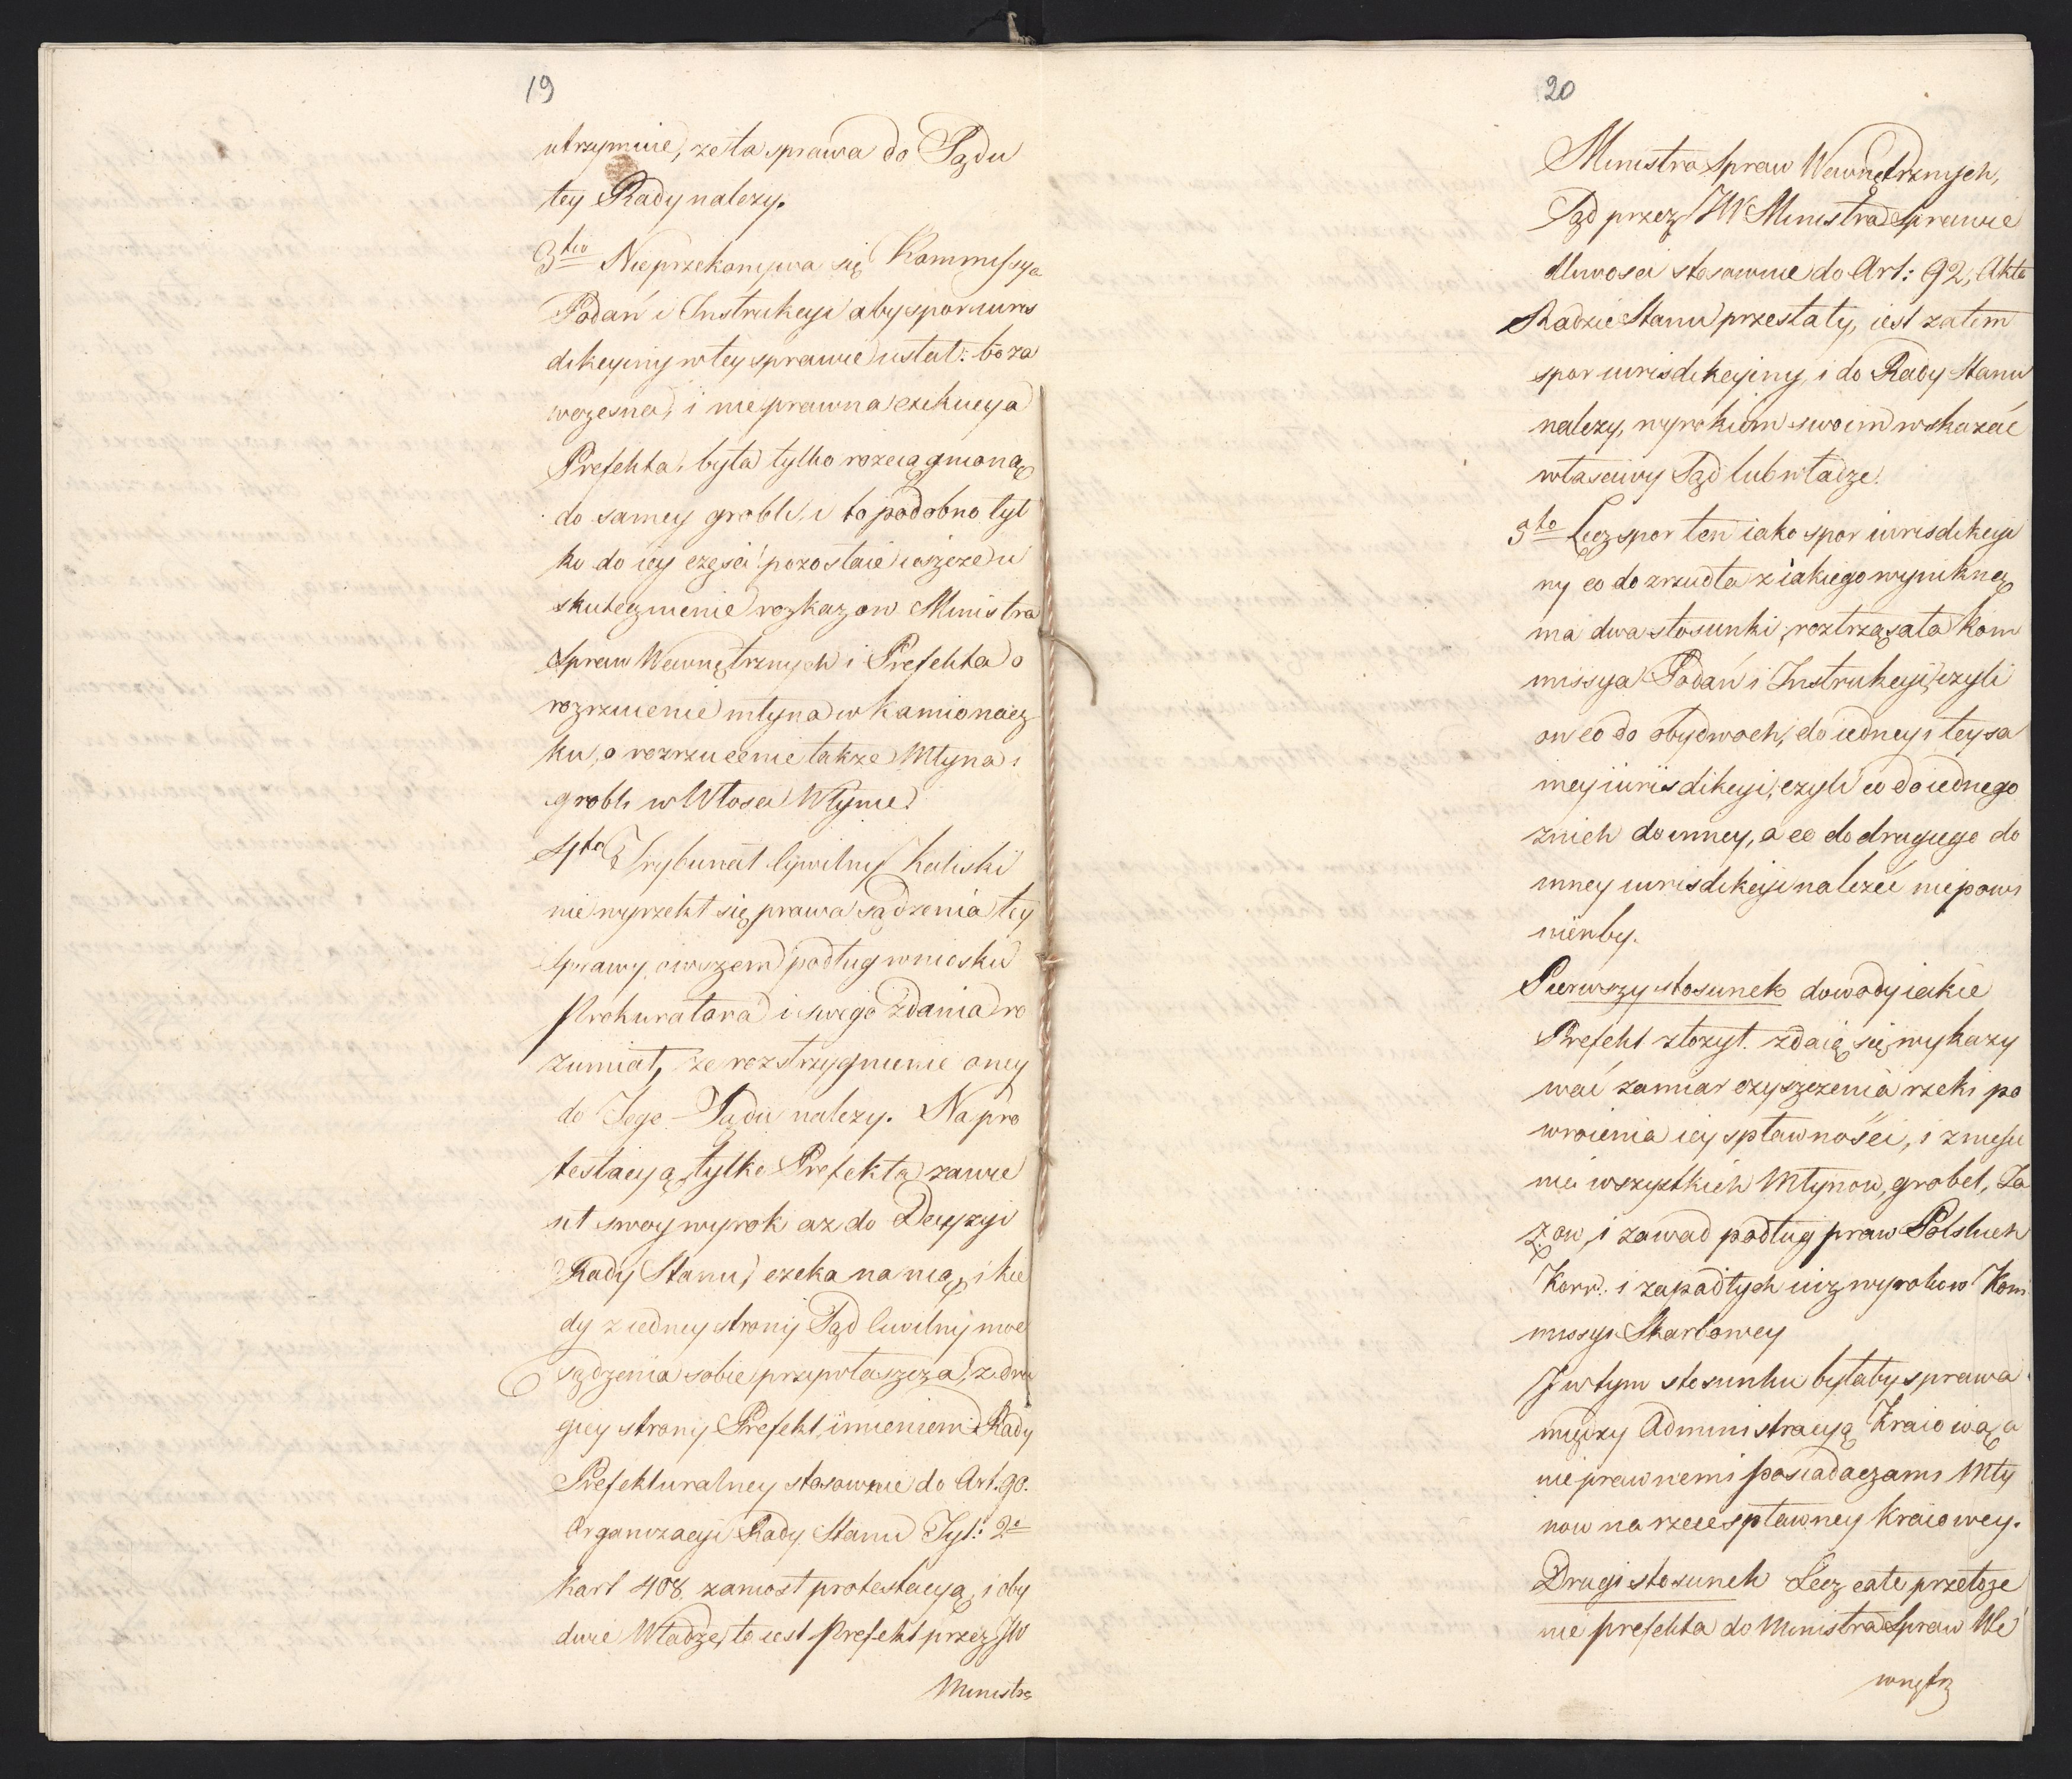 19
utrzymuie, że ta sprawa do Sądu
tey Rady nalezy.
3tio Nieprzekonywa się Kommissya
Podań i Instrukcyi aby spor iuris
dikcyiny w tey sprawie ustał: bo za
wczesna, i nieprawna exekucya
Prefekta, była tylko rozciągnioną
do samey grobli, i to podobno tyl
ko do iey części! pozostaie ieszcze u
skutecznienie rozkazow Ministra
Spraw Wewnętrznych i Prefekta o
rozrzucenie młyna w Kamionacz
ku, o rozrzucenie takze Młyna i
grobli w Włosci Włynie.
4to Trybunał Cywilny Kaliski
nie wyrzekł się prawa sądzenia tey
sprawy, owszem podług wniosku
Prokuratora i swego zdania ro
zumiał, że rozstrzygnienie oney
do Jego Sądu nalezy. Na pro
testacyą tylko Prefekta zawie
sił swoy wyrok az do Decyzyi
Rady Stanu, czeka na nią, i kie
dy z iedney strony Sąd Cuwilny moc
sądzenia sobie przywłaszcza, z dru
giey strony Prefekt imieniem Rady
Prefekturalney stosownie do Art. 90.
Organizacyi Rady Stanu Tyt: 2o
kart 408. zaniosł protestacyą, i oby
dwie Władze, to iest Prefekt przez JW
Ministra
20
Ministra Spraw Wewnętrznych,
Sąd przez JW Ministra Sprawie
dliwosci stosownie do Art: 92, Akta
Radzie Stanu przesłały, iest zatem
spor iurisdikcyiny, i do Rady Stanu
nalezy, wyrokiem swoim wskazać
własciwy Sąd lub władzę.
5to Lecz spor ten iako spor iurisdikcyi
ny co do zrzudła z iakiego wyniknął
ma dwa stosunki, roztrząsała Kom
missya Podań i Instrukcyi, czyli
on co do obydwoch, do iedney i tey sa
mey iurisdikcyi, czyli co do iednego
z nich do inney, a co do drugiego do
inney iurisdikcyi nalezéć niepowi
nienby.
Pierwszy stosunek dowody iakie
Prefekt złozył. zdaią się wykazy
wać zamiar czyszczenia rzeki po
wrocenia iey spławności, i zniesie
nia wszystkich Młynow, grobel, Ja
zow, i zawad podług praw Polskich
Koro. i zapadłych iuz wyrokow Kom
missyi Skarbowey
I w tym stosunku byłaby sprawa
między Administracyą Kraiową, a
nieprawnemi posiadaczami Mły
now na rzece spławney Kraiowey.
Drugi stosunek Lecz całe przełoze
nie prefekta do Ministra Spraw We
wnętrz